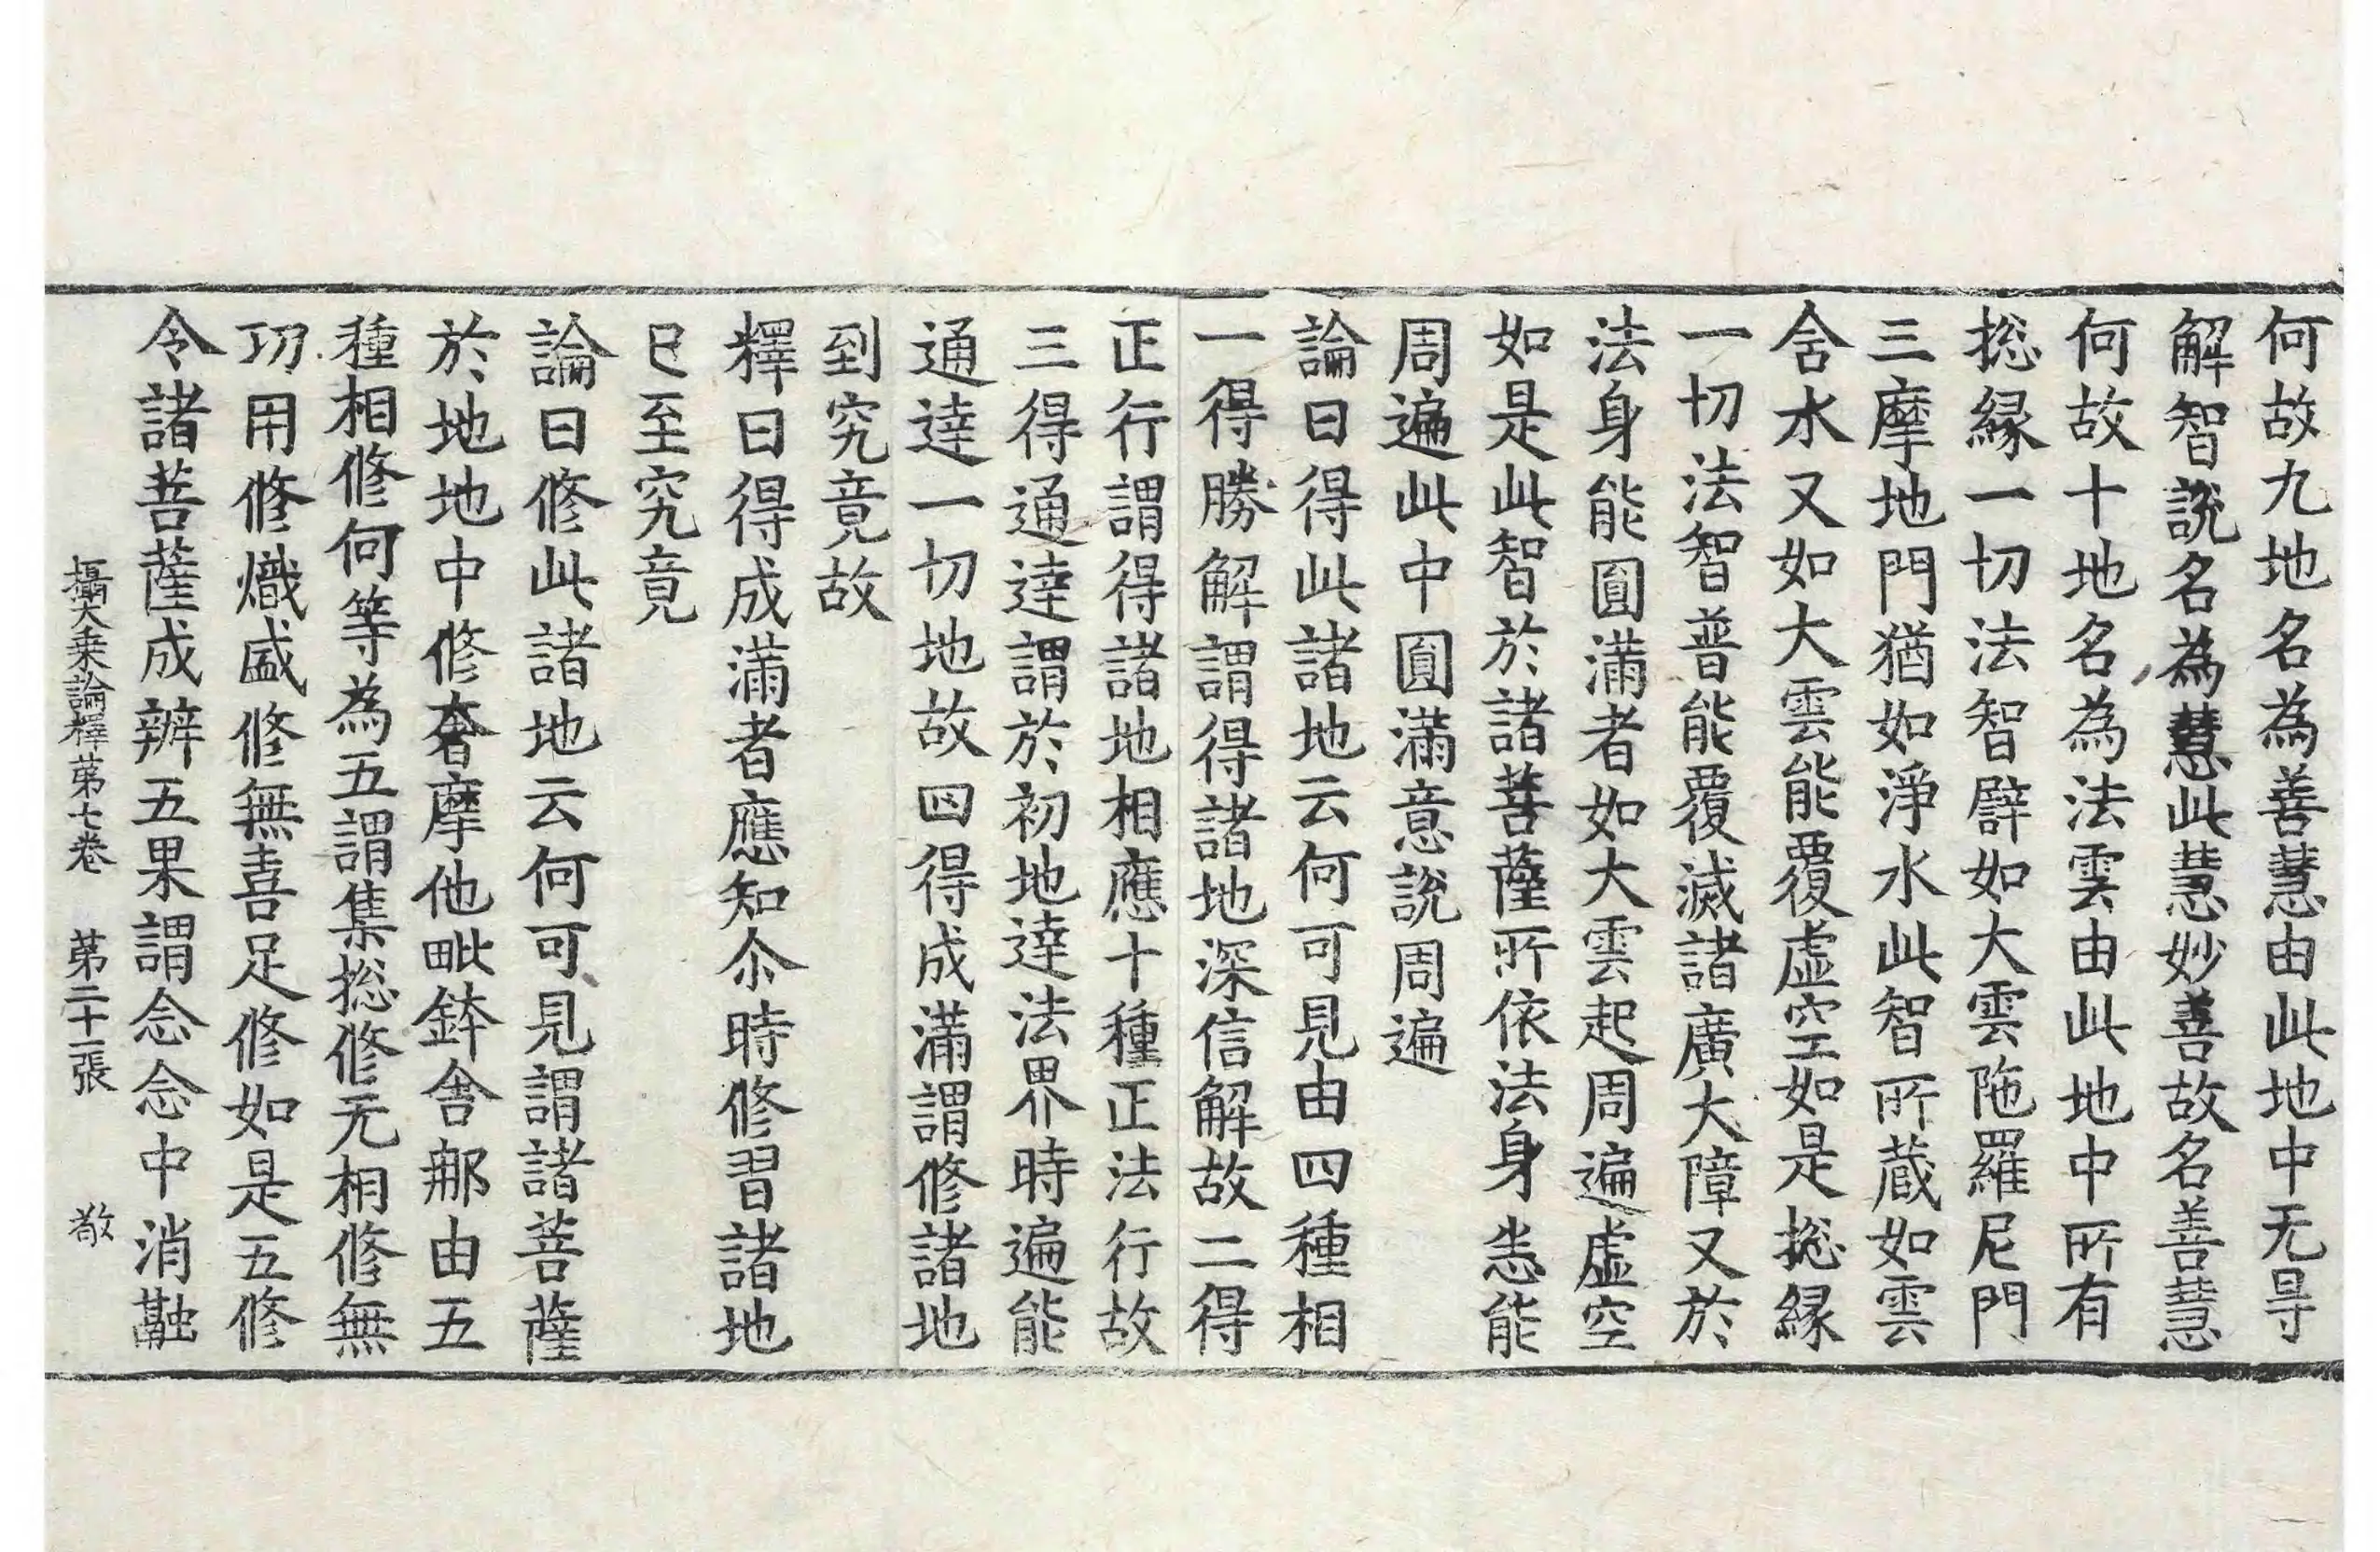 何故九地名為善慧由此地中无㝵
解智說名為慧此慧妙善故名善慧
何故十地名為法雲由此地中所有
揔緣一切法智譬如大雲陁羅尼門
三摩地門猶如淨水此智所蔵如雲
含水又如大雲能覆虛空如是揔緣
一切法智普能覆滅諸廣大障又於
法身能圓滿者如大雲起周遍虛空
如是此智於諸菩薩所依法身悉能
周遍此中圓滿意說周遍
論曰得此諸地云何可見由四種相
一得勝解謂得諸地深信解故二得
正行謂得諸地相應十種正法行故
三得通達謂於初地達法界時遍能
通達一切地故四得成滿謂修諸地
到究竟故
釋曰得成滿者應知尒時修習諸地
已至究竟
論曰修此諸地云何可見謂諸菩薩
於地地中修奢摩他毗鉢舍那由五
種相修何等為五謂集揔修无相修無
功用修熾盛修無喜足修如是五修
令諸菩薩成辦五果謂念念中消融
攝大乘論釋第七卷 第二十一張 敬